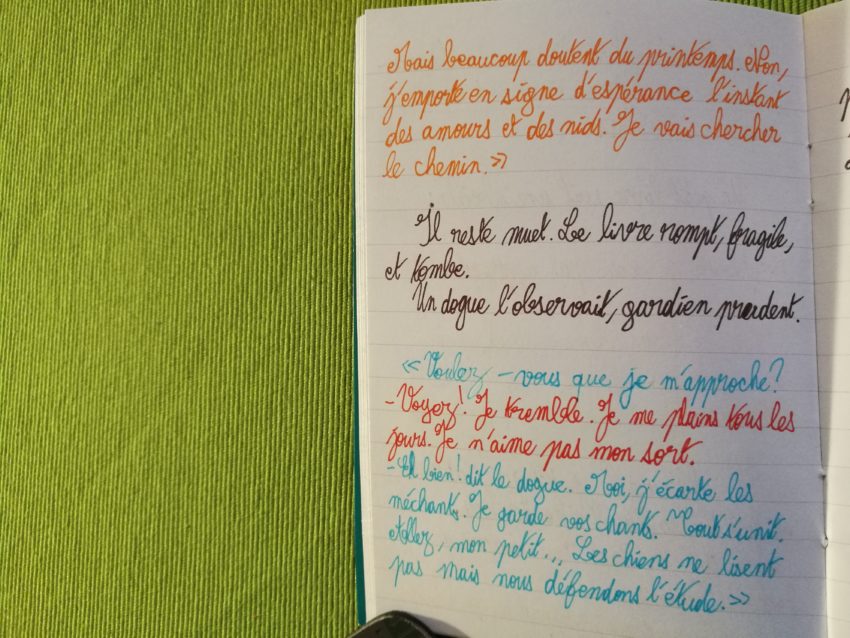 Mais beaucoup doutent du printemps. Non,
j'emporte en signe d'espérance l'instant
des amours et des nids. Je vais chercher
le chemin.»
Il reste muet. Le livre rompt, fragile,
et tombe.
Un dogue l'observait, gardien prudent.
«Voulez-vous que je m'approche?
-Voyez! Je tremble. Je me plains tous les
jours. Je n'aime pas mon sort.
-Eh bien! dit le dogue. Moi, j'écarte les
méchants. Je garde vos chants. Tout s'unit.
Allez, mon petit... Les chiens ne lisent
pas mais nous défendons l'étude.»